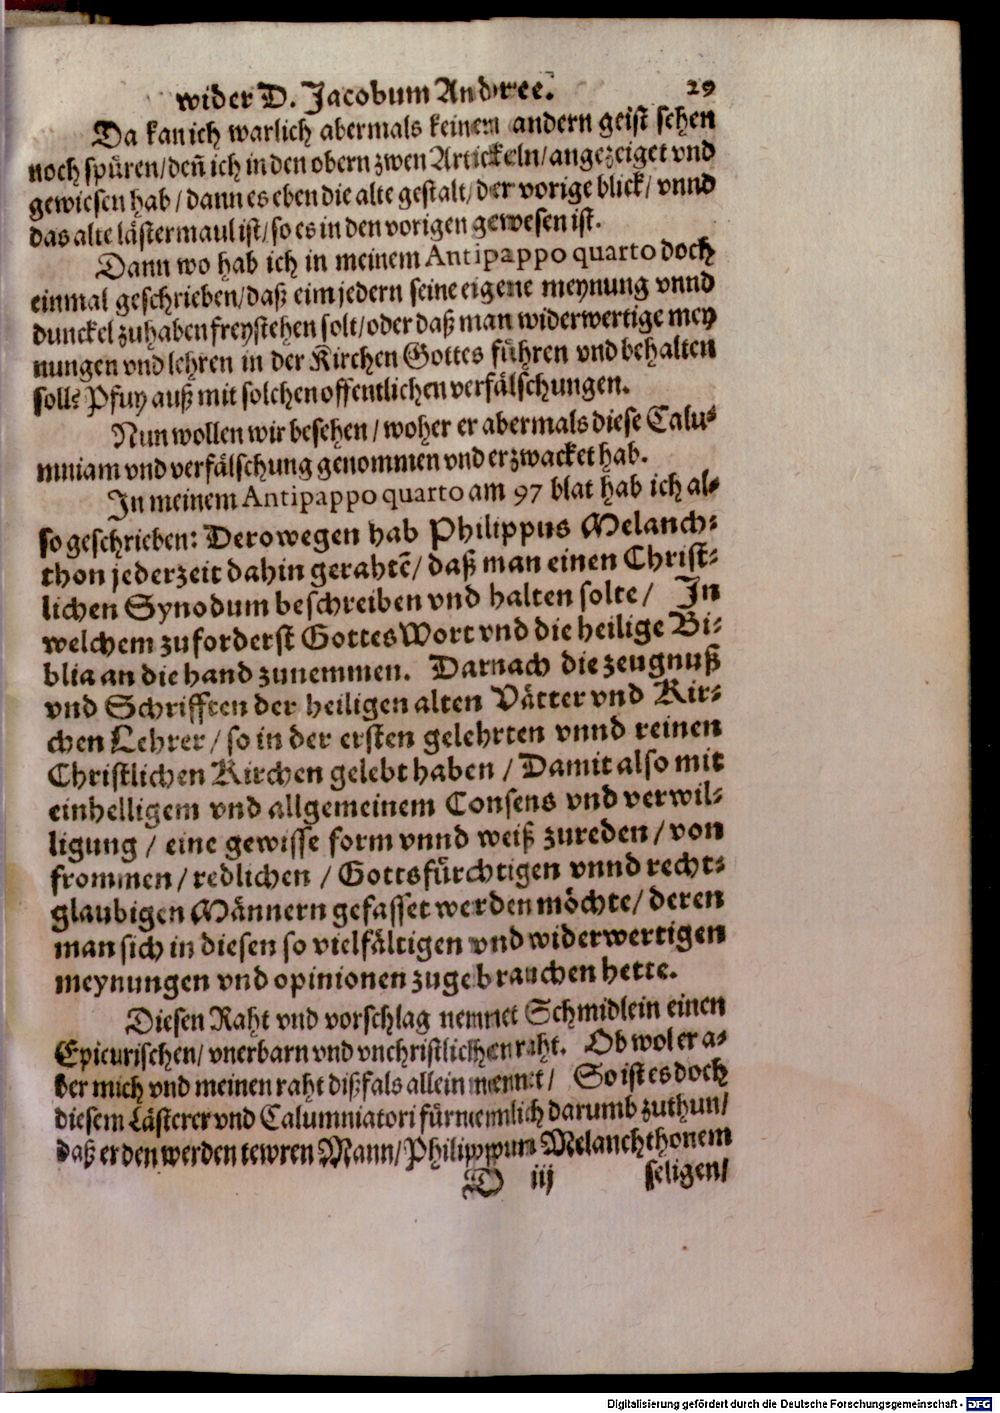 wider D. Jacobum Andree. 29
Da kan ich warlich abermals keinem andern geist sehen
noch spüren/ deñ ich in den obern zwen Artickeln/ angezeiget vnd
gewiesen hab/ dann es eben die alte gestalt/ der vorige blick/ vnnd
das alte lästermaul ist/ so es in den vorigen gewesen ist.
Dann wo hab ich in meinem Antipappo quarto doch
einmal geschrieben/ daß eim jedern seine eigene meynung vnnd
dunckel zuhaben freystehen solt/ oder daß man widerwertige mey
nungen vnd lehren in der Kirchen Gottes führen vnd behalten
soll? Pfuy auß mit solchen offentlichen verfälschungen.
Nun wollen wir besehen/ woher er abermals diese Calu-
mniam vnd verfälschung genommen vnd erzwacket hab.
In meinem Antipappo quarto am 97 blat hab ich al-
so geschrieben: Derowegen hab Philippus Melanch-
thon jederzeit dahin gerahtẽ/ daß man einen Christ-
lichen Synodum beschreiben vnd halten solte/ In
welchem zuforderst Gottes Wort vnd die heilige Bi-
blia an die hand zunemmen. Darnach die zeugnuß
vnd Schrifften der heiligen alten Vätter vnd Kir-
chen Lehrer/ so in der ersten gelehrten vnnd reinen
Christlichen Kirchen gelebt haben/ Damit also mit
einhelligem vnd allgemeinem Consens vnd verwil-
ligung/ eine gewisse form vnnd weiß zureden/ von
frommen/ redlichen/ Gottsfürchtigen vnnd recht-
glaubigen Männern gefasset werden möchte/ deren
man sich in diesen so vielfältigen vnd widerwertigen
meynungen vnd opinionen zugebrauchen hette.
Diesen Raht vnd vorschlag nennet Schmidlein einen
Epicurischen/ vnerbarn vnd vnchristlichen raht. Ob wol er a-
ber mich vnd meinen raht dißfals allein nennet/ So ist es doch
diesem Lästerer vnd Calumniatori fürnemlich darumb zuthun/
daß er den werden tewren Mann/ Philippum Melanchthonem
D iij seligen/
Digitalisierung gefördert durch die Deutsche Forschungsgemeinschaft - DFG